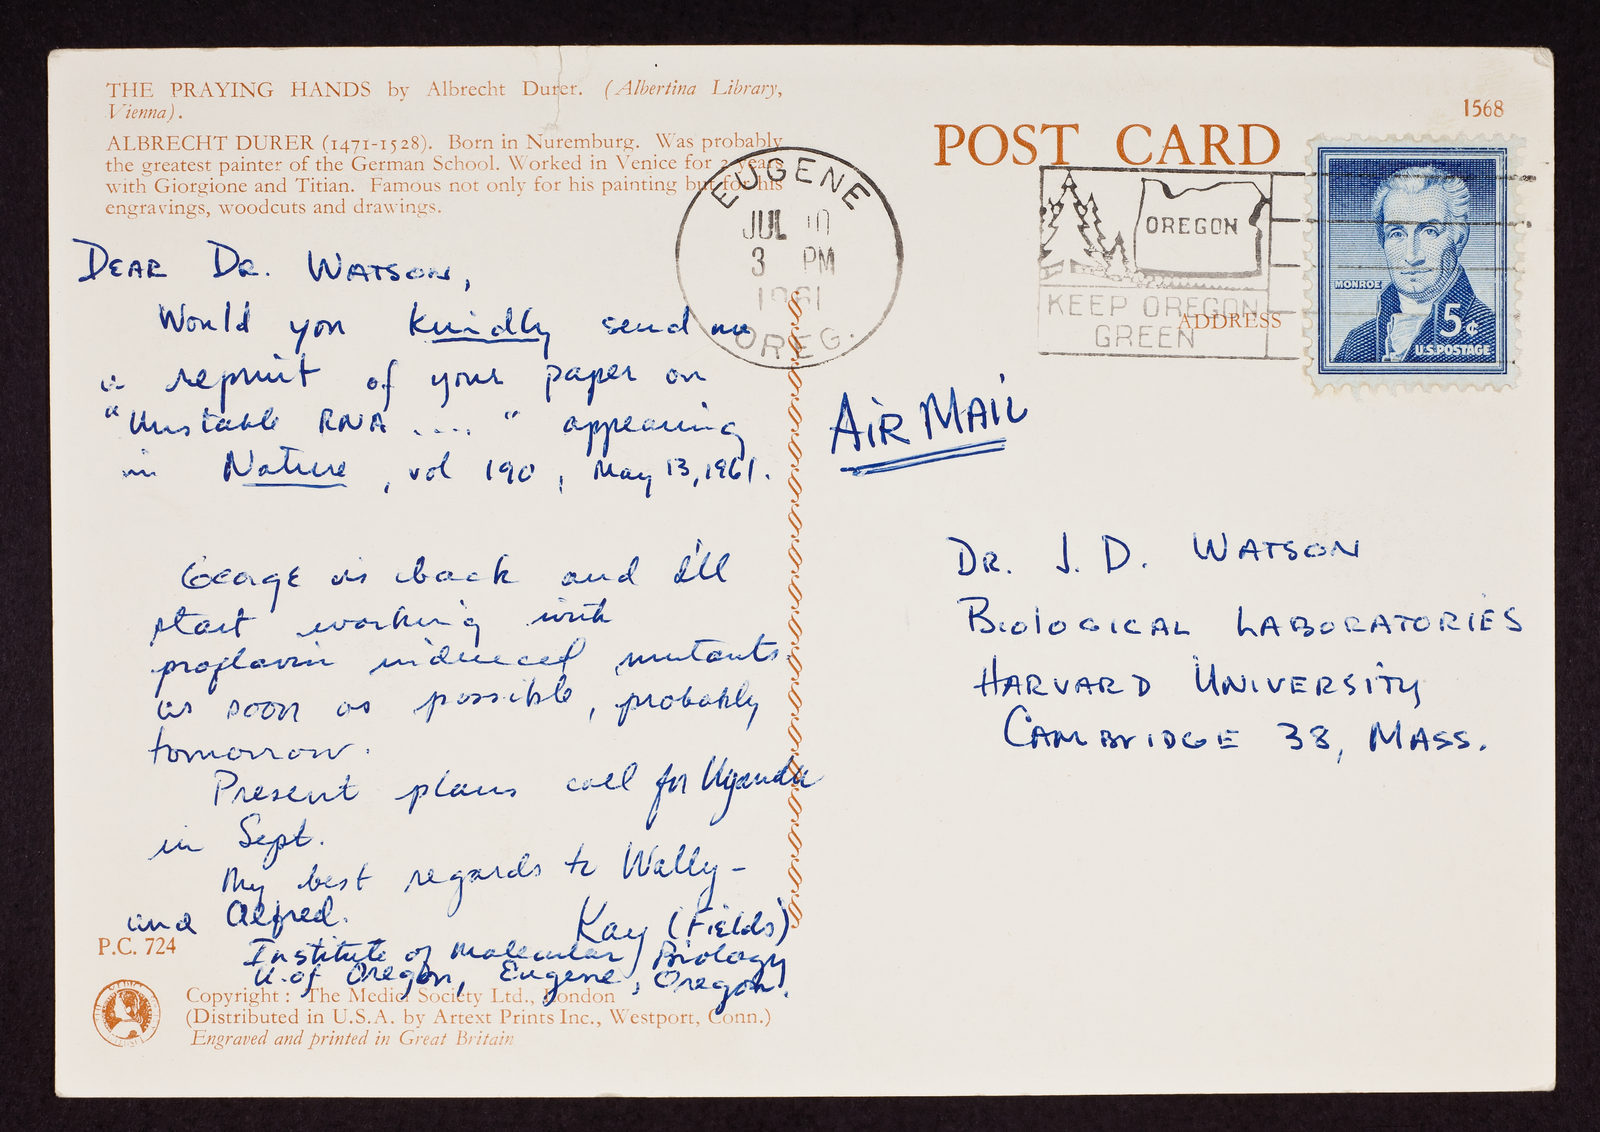 THE PRAYING HANDS by Albrecht Durer. (Albertina Library,
Vienna).
ALBRECHT DURER (1471-1528). Born in Nuremburg. Was probably
the greatest painter of the German School. Worked in Venice for 2 years
with Giorgione and Titian. Famous not only for his painting but for his
engravings, woodcuts and drawings.
DEAR DR. WATSON,
Would you kindly send me
a reprint of your paper on
"Unstable RNA ...." appearing
in Nature, vol 190, May 13, 1961.
George is back and I'll
start working with
proflavin induced mutants
as soon as possible, probably
tomorrow.
Present plans call for Uganda
in Sept.
My best regards to Wally -
and Alfred.
Kay (Fields)
Institute of Molecular Biology
U. of Oregon, Eugene, Oregon.
P.C. 724
Copyright: The Medici Society Ltd., London
(Distributed in U.S.A. by Artext Prints Inc., Westport, Conn.)
Engraved and printed in Great Britain
EUGENE
JUL 10
3 PM
1961
OREG.
1568
POST CARD
OREGON
KEEP OREGON
GREEN
ADDRESS
MONROE
5¢
U.S. POSTAGE
AIR MAIL
DR. J. D. WATSON
BIOLOGICAL LABORATORIES
HARVARD UNIVERSITY
CAMBRIDGE 38, MASS.